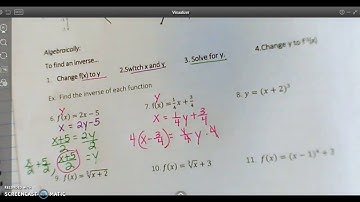 Visualizer
Algebraically:
To find an inverse...
1. Change f(x) to y
2.Switch x and y.
3. Solve for y.
4.Change y to f⁻¹(x)
Ex: Find the inverse of each function
y
6. f(x) = 2x - 5
x = 2y - 5
x+5/2 = 2y/2
x/2 + 5/2, x+5/2 = y
y
7. f(x) = 1/4 x + 3/4
x = 1/4 y + 3/4
4(x - 3/4) = 1/4 y · 4
8. y = (x + 2)³
9. f(x) = ∛x + 2
10. f(x) = ∛x + 3
11. f(x) = (x - 5)⁴ + 3
RECORDED WITH
SCREENCAST MATIC